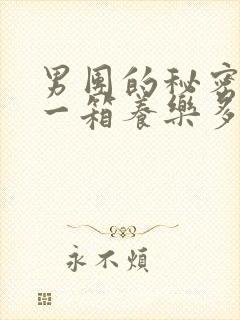 男团的秘密
一箱養樂多
永不煩